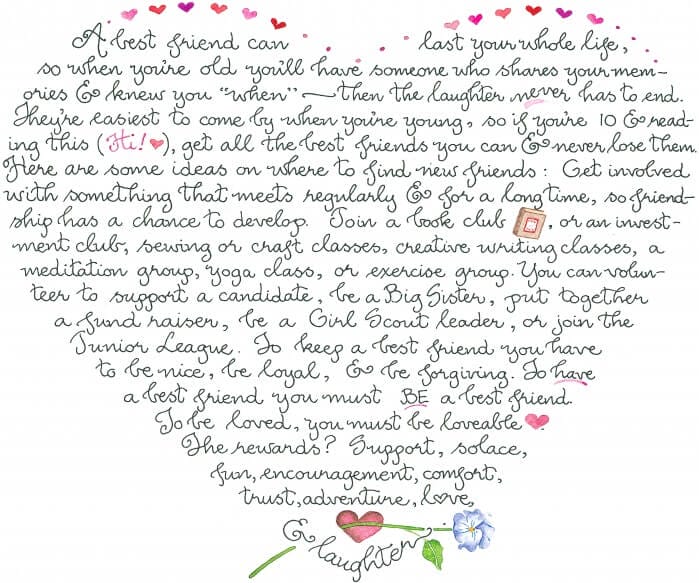 A best friend can last your whole life,
so when you're old you'll have someone who shares your mem-
ories & knew you "when" — then the laughter never has to end.
They're easiest to come by when you're young, so if you're 10 & read-
ing this (Hi! ♥), get all the best friends you can & never lose them.
Here are some ideas on where to find new friends: Get involved
with something that meets regularly & for a long time, so friend-
ship has a chance to develop. Join a book club, or an invest-
ment club, sewing or craft classes, creative writing classes, a
meditation group, yoga class, or exercise group. You can volun-
teer to support a candidate, be a Big Sister, put together
a fund raiser, be a Girl Scout leader, or join the
Junior League. To keep a best friend you have
to be nice, be loyal, & be forgiving. To have
a best friend you must BE a best friend.
To be loved, you must be loveable ♥
The rewards? Support, solace,
fun, encouragement, comfort,
trust, adventure, love,
& laughter.